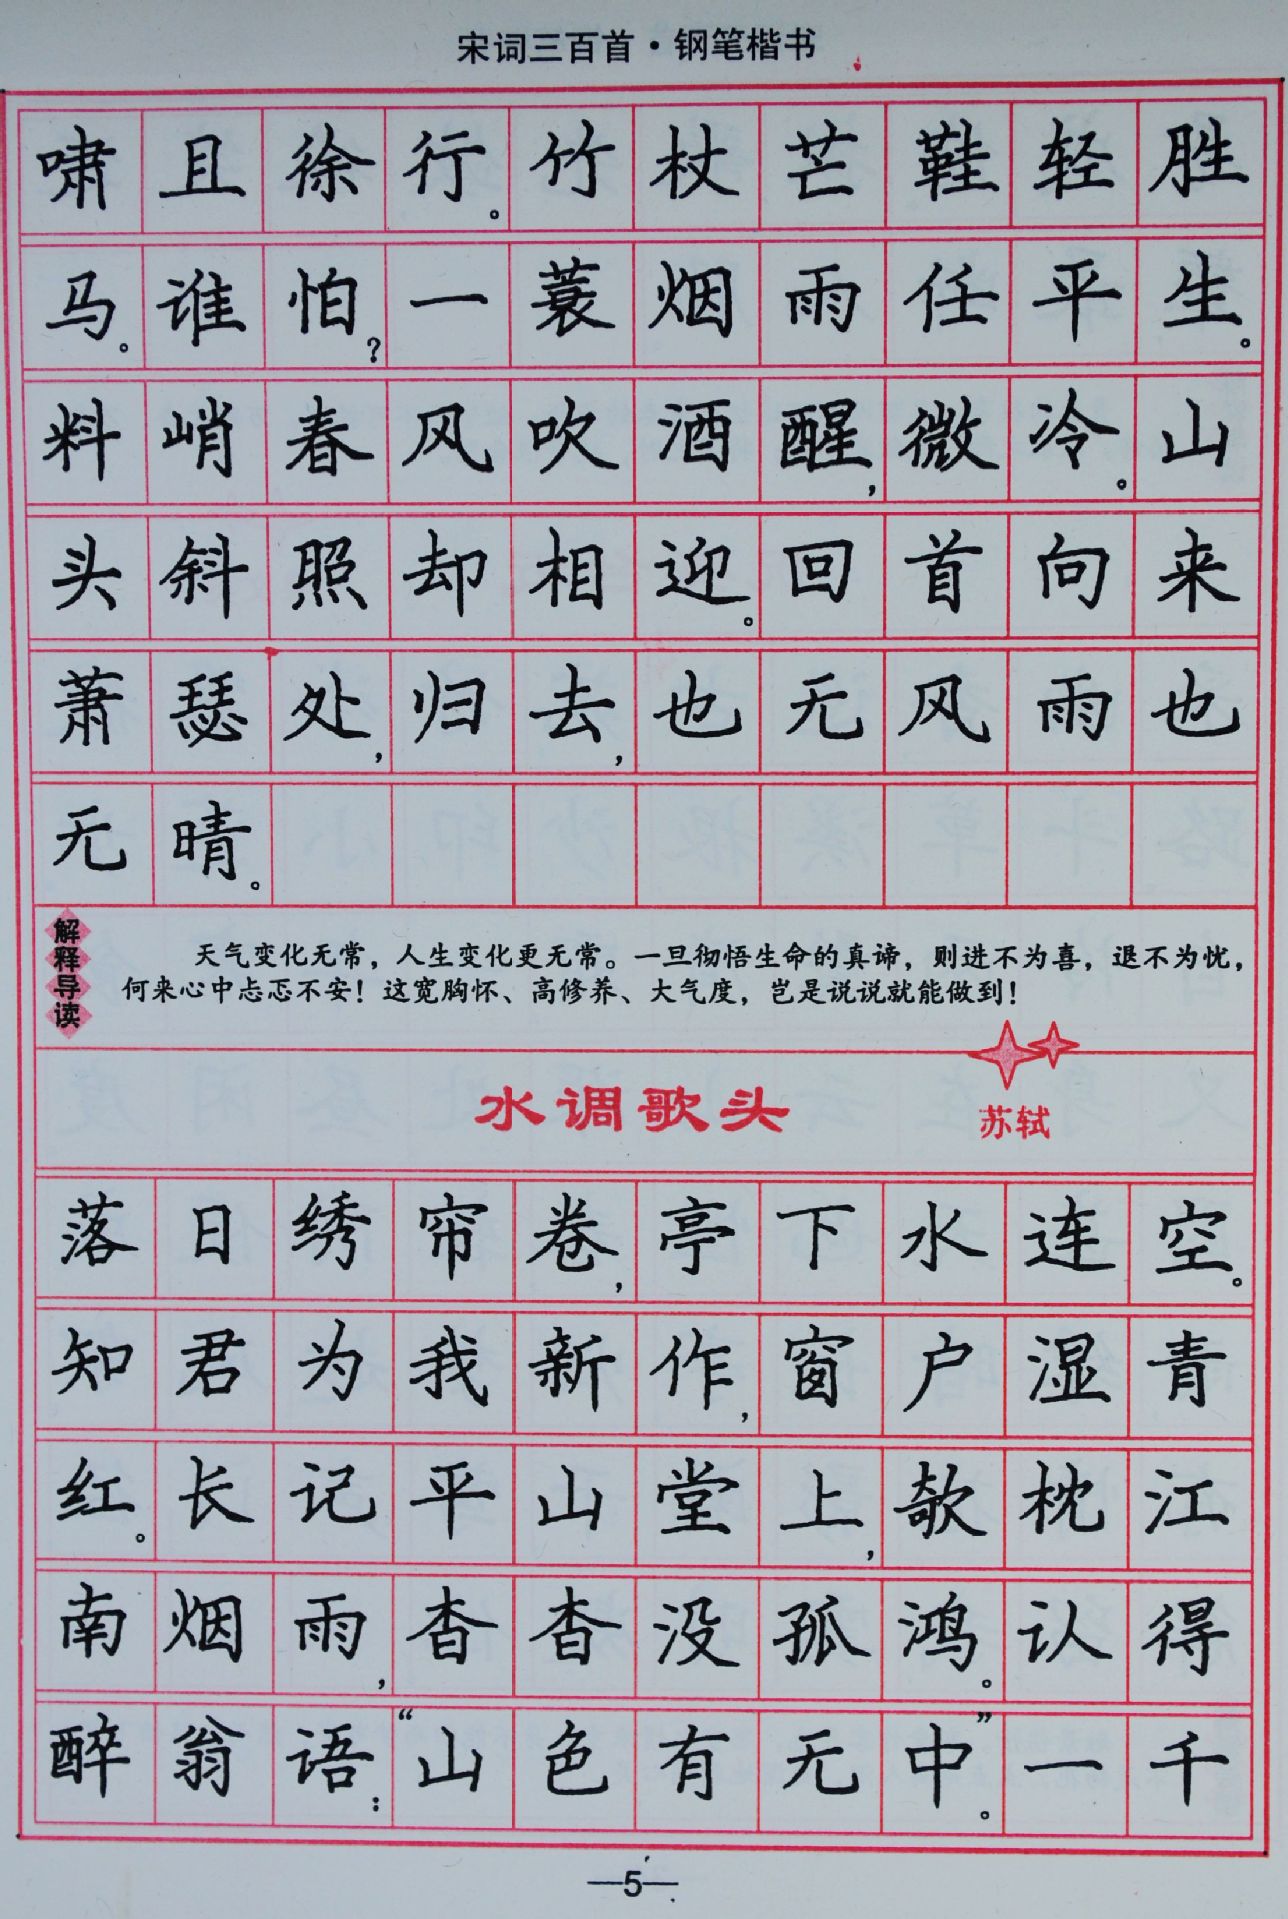 宋词三百首·钢笔楷书
啸且徐行。竹杖芒鞋轻胜
马。谁怕？一蓑烟雨任平生。
料峭春风吹酒醒，微冷。山
头斜照却相迎。回首向来
萧瑟处，归去，也无风雨也
无晴。
解释导读
天气变化无常，人生变化更无常。一旦彻悟生命的真谛，则进不为喜，退不为忧，
何来心中忐忑不安！这宽胸怀、高修养、大气度，岂是说说就能做到！
水调歌头
苏轼
落日绣帘卷，亭下水连空。
知君为我新作，窗户湿青
红。长记平山堂上，欹枕江
南烟雨，杳杳没孤鸿。认得
醉翁语：“山色有无中”。一千
—5—